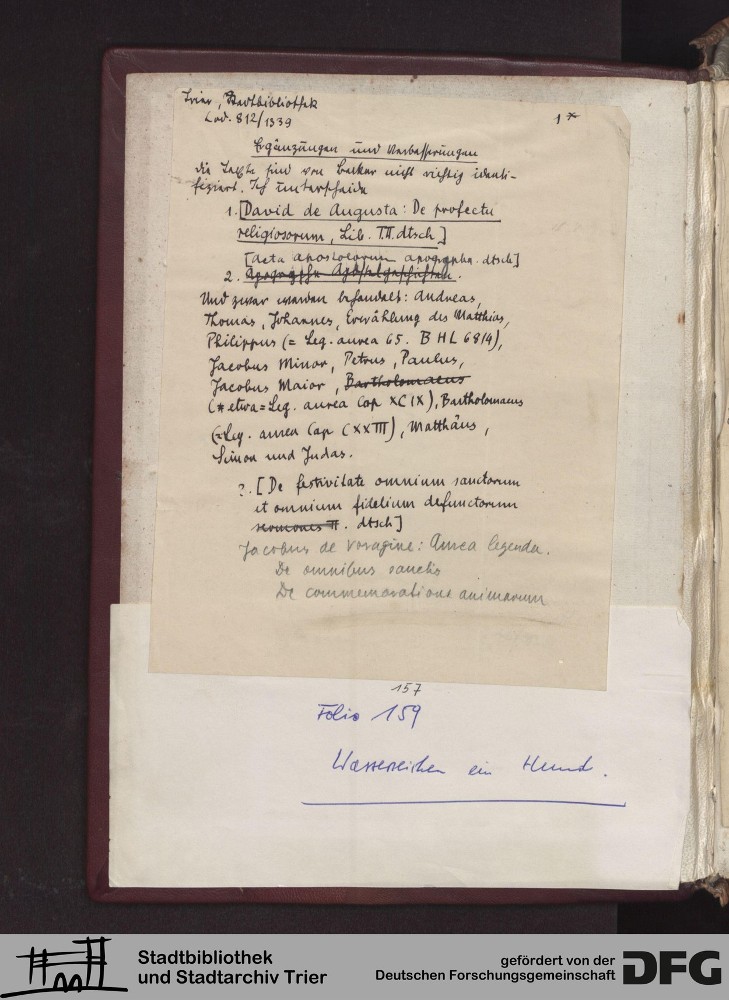 Trier, Stadtbibliothek
Cod. 812/1339
1*
Ergänzungen und Verbesserungen
Die Texte sind von Becker nicht richtig identi-
fiziert. Ich unterscheide
1. [David de Augusta: De profectu
religiosorum, Lib. I.II. dtsch.]
[Acta apostolorum apogrypha. dtsch]
2. Apogryphe Apostelgeschichten.
Und zwar werden behandelt: Andreas,
Thomas, Johannes, Erwählung des Matthias,
Philippus (= Leg. aurea 65. BHL 6814),
Jacobus Minor, Petrus, Paulus,
Jacobus Maior, Bartholomaeus
(* etwa = Leg. aurea Cap XCIX), Bartholomaeus
(= Leg. aurea Cap CXXIII), Matthäus,
Simon und Judas.
3. [De festivitate omnium sanctorum
et omnium fidelium defunctorum
sermones II. dtsch]
Jacobus de Voragine: Aurea legenda.
De omnibus sanctis
De commemoratione animarum
157
Folio 159
Wasserzeichen ein Hund.
Stadtbibliothek
und Stadtarchiv Trier
gefördert von der
Deutschen Forschungsgemeinschaft
DFG